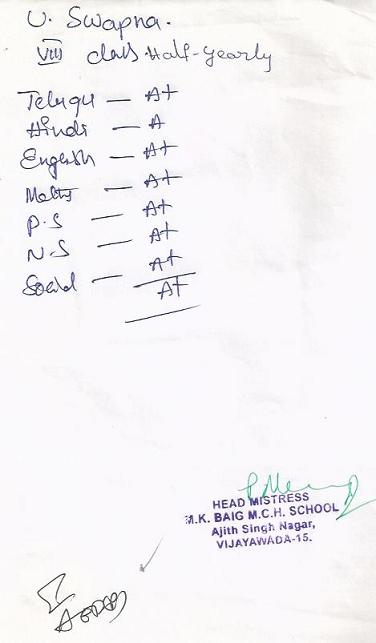 U. Swapna.
VIII class Half-yearly
Telugu — A+
Hindi — A
English — A+
Maths — A+
P.S — A+
N.S — A+
Social — A+
A+
HEAD MISTRESS
M.K. BAIG M.C.H. SCHOOL
Ajith Singh Nagar,
VIJAYAWADA-15.